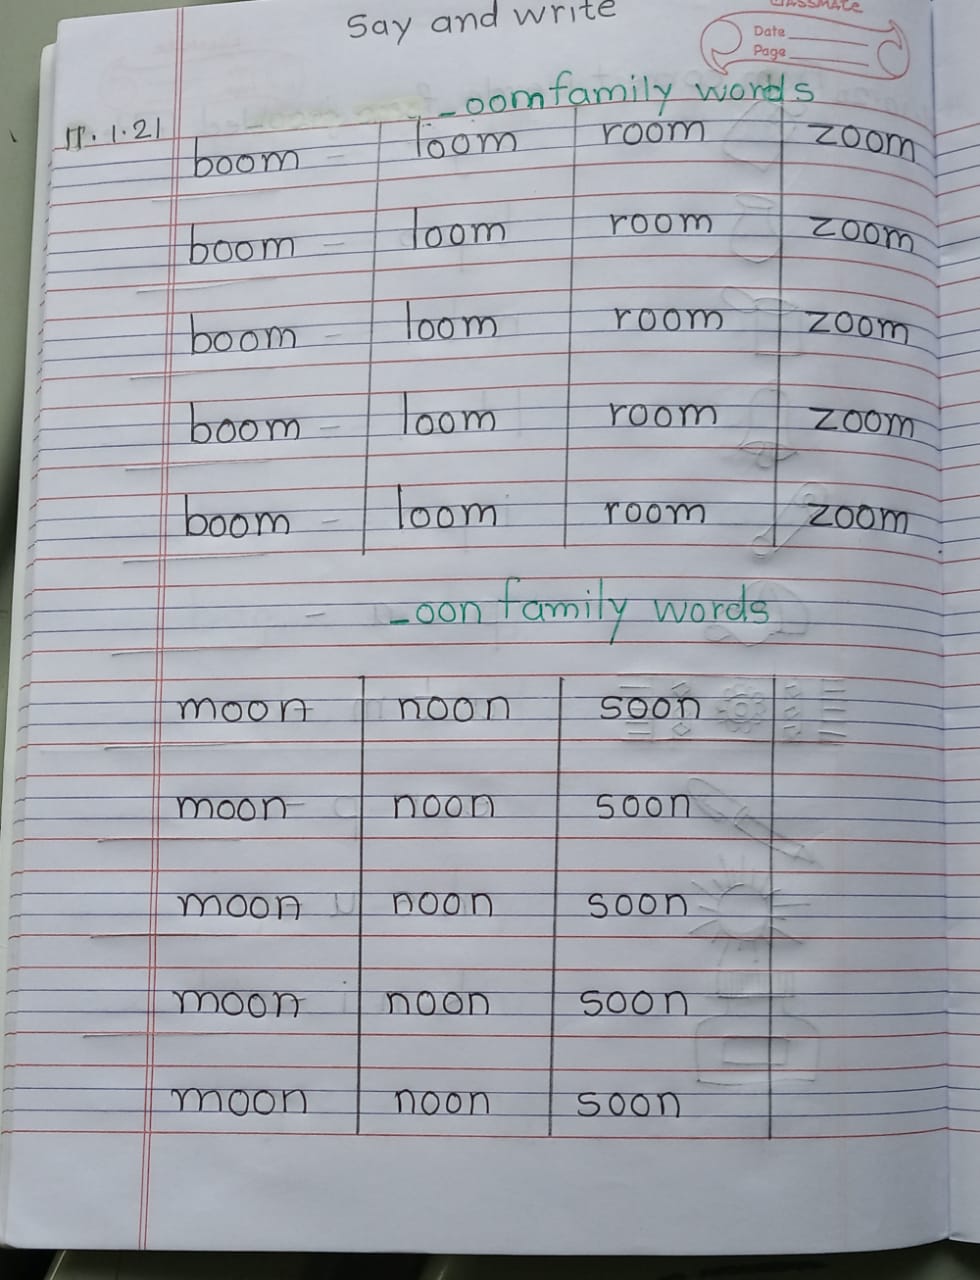 Say and write
CLASSMATE
Date
Page
_oom family words
17.1.21
boom loom room zoom
boom loom room zoom
boom loom room zoom
boom loom room zoom
boom loom room zoom
_oon family words
moon noon soon
moon noon soon
moon noon soon
moon noon soon
moon noon soon